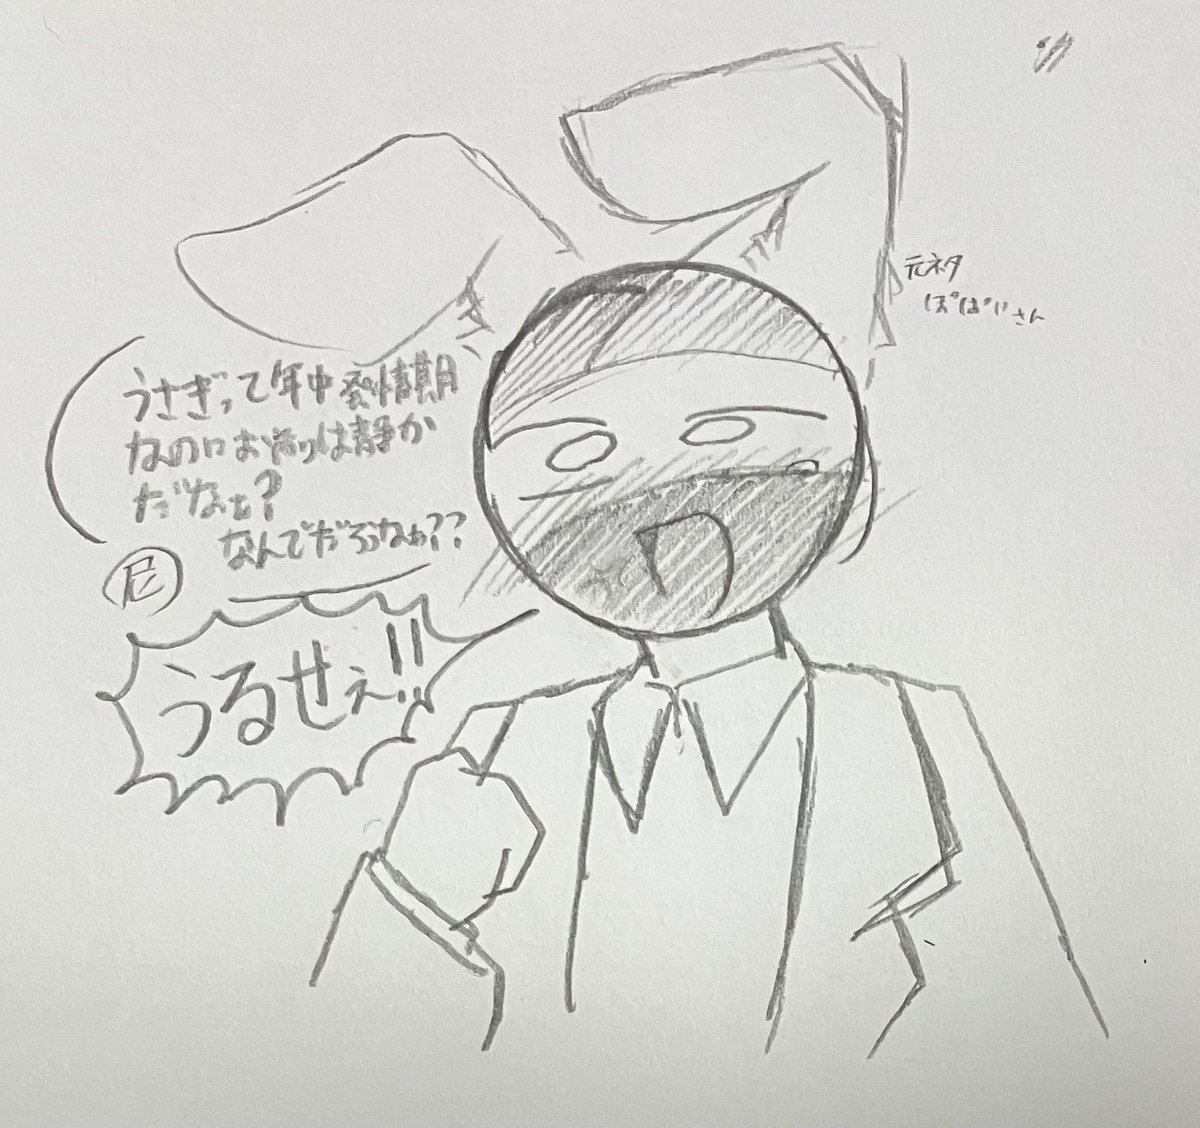 うさぎって年中発情期
なのにお前は静か
だなぁ?
なんでだろうなぁ??
尼
うるせぇ!!
元ネタ
さん